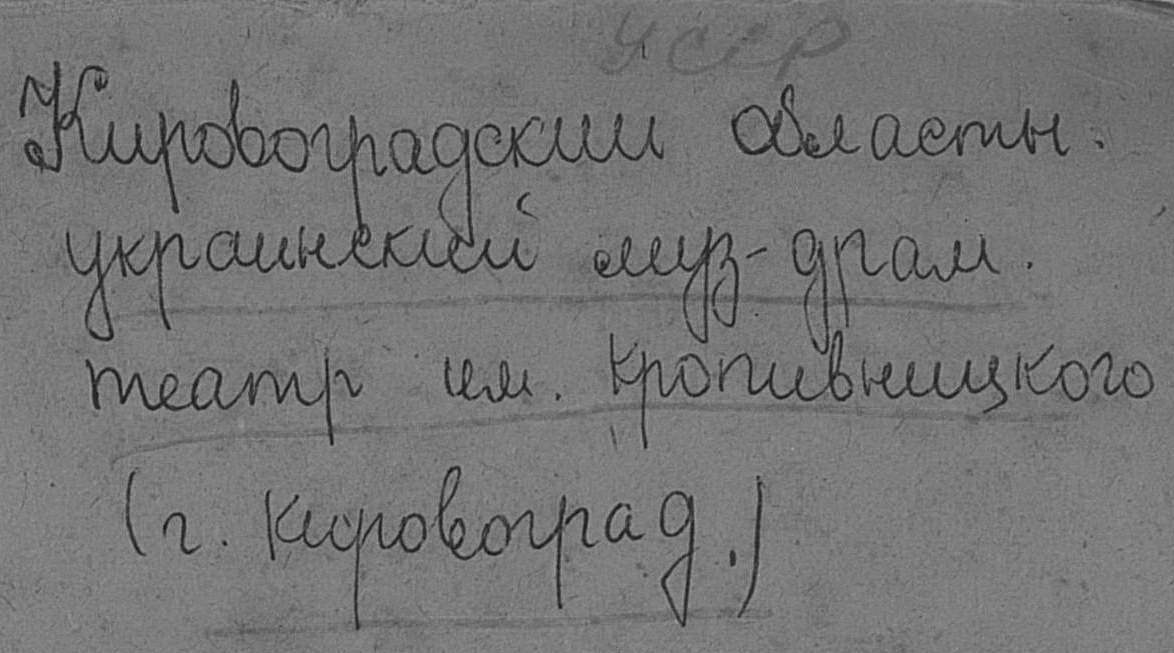 УССР
Кировоградский областн.
украинский муз-драм.
театр им. Кропивницкого
(г. Кировоград.)